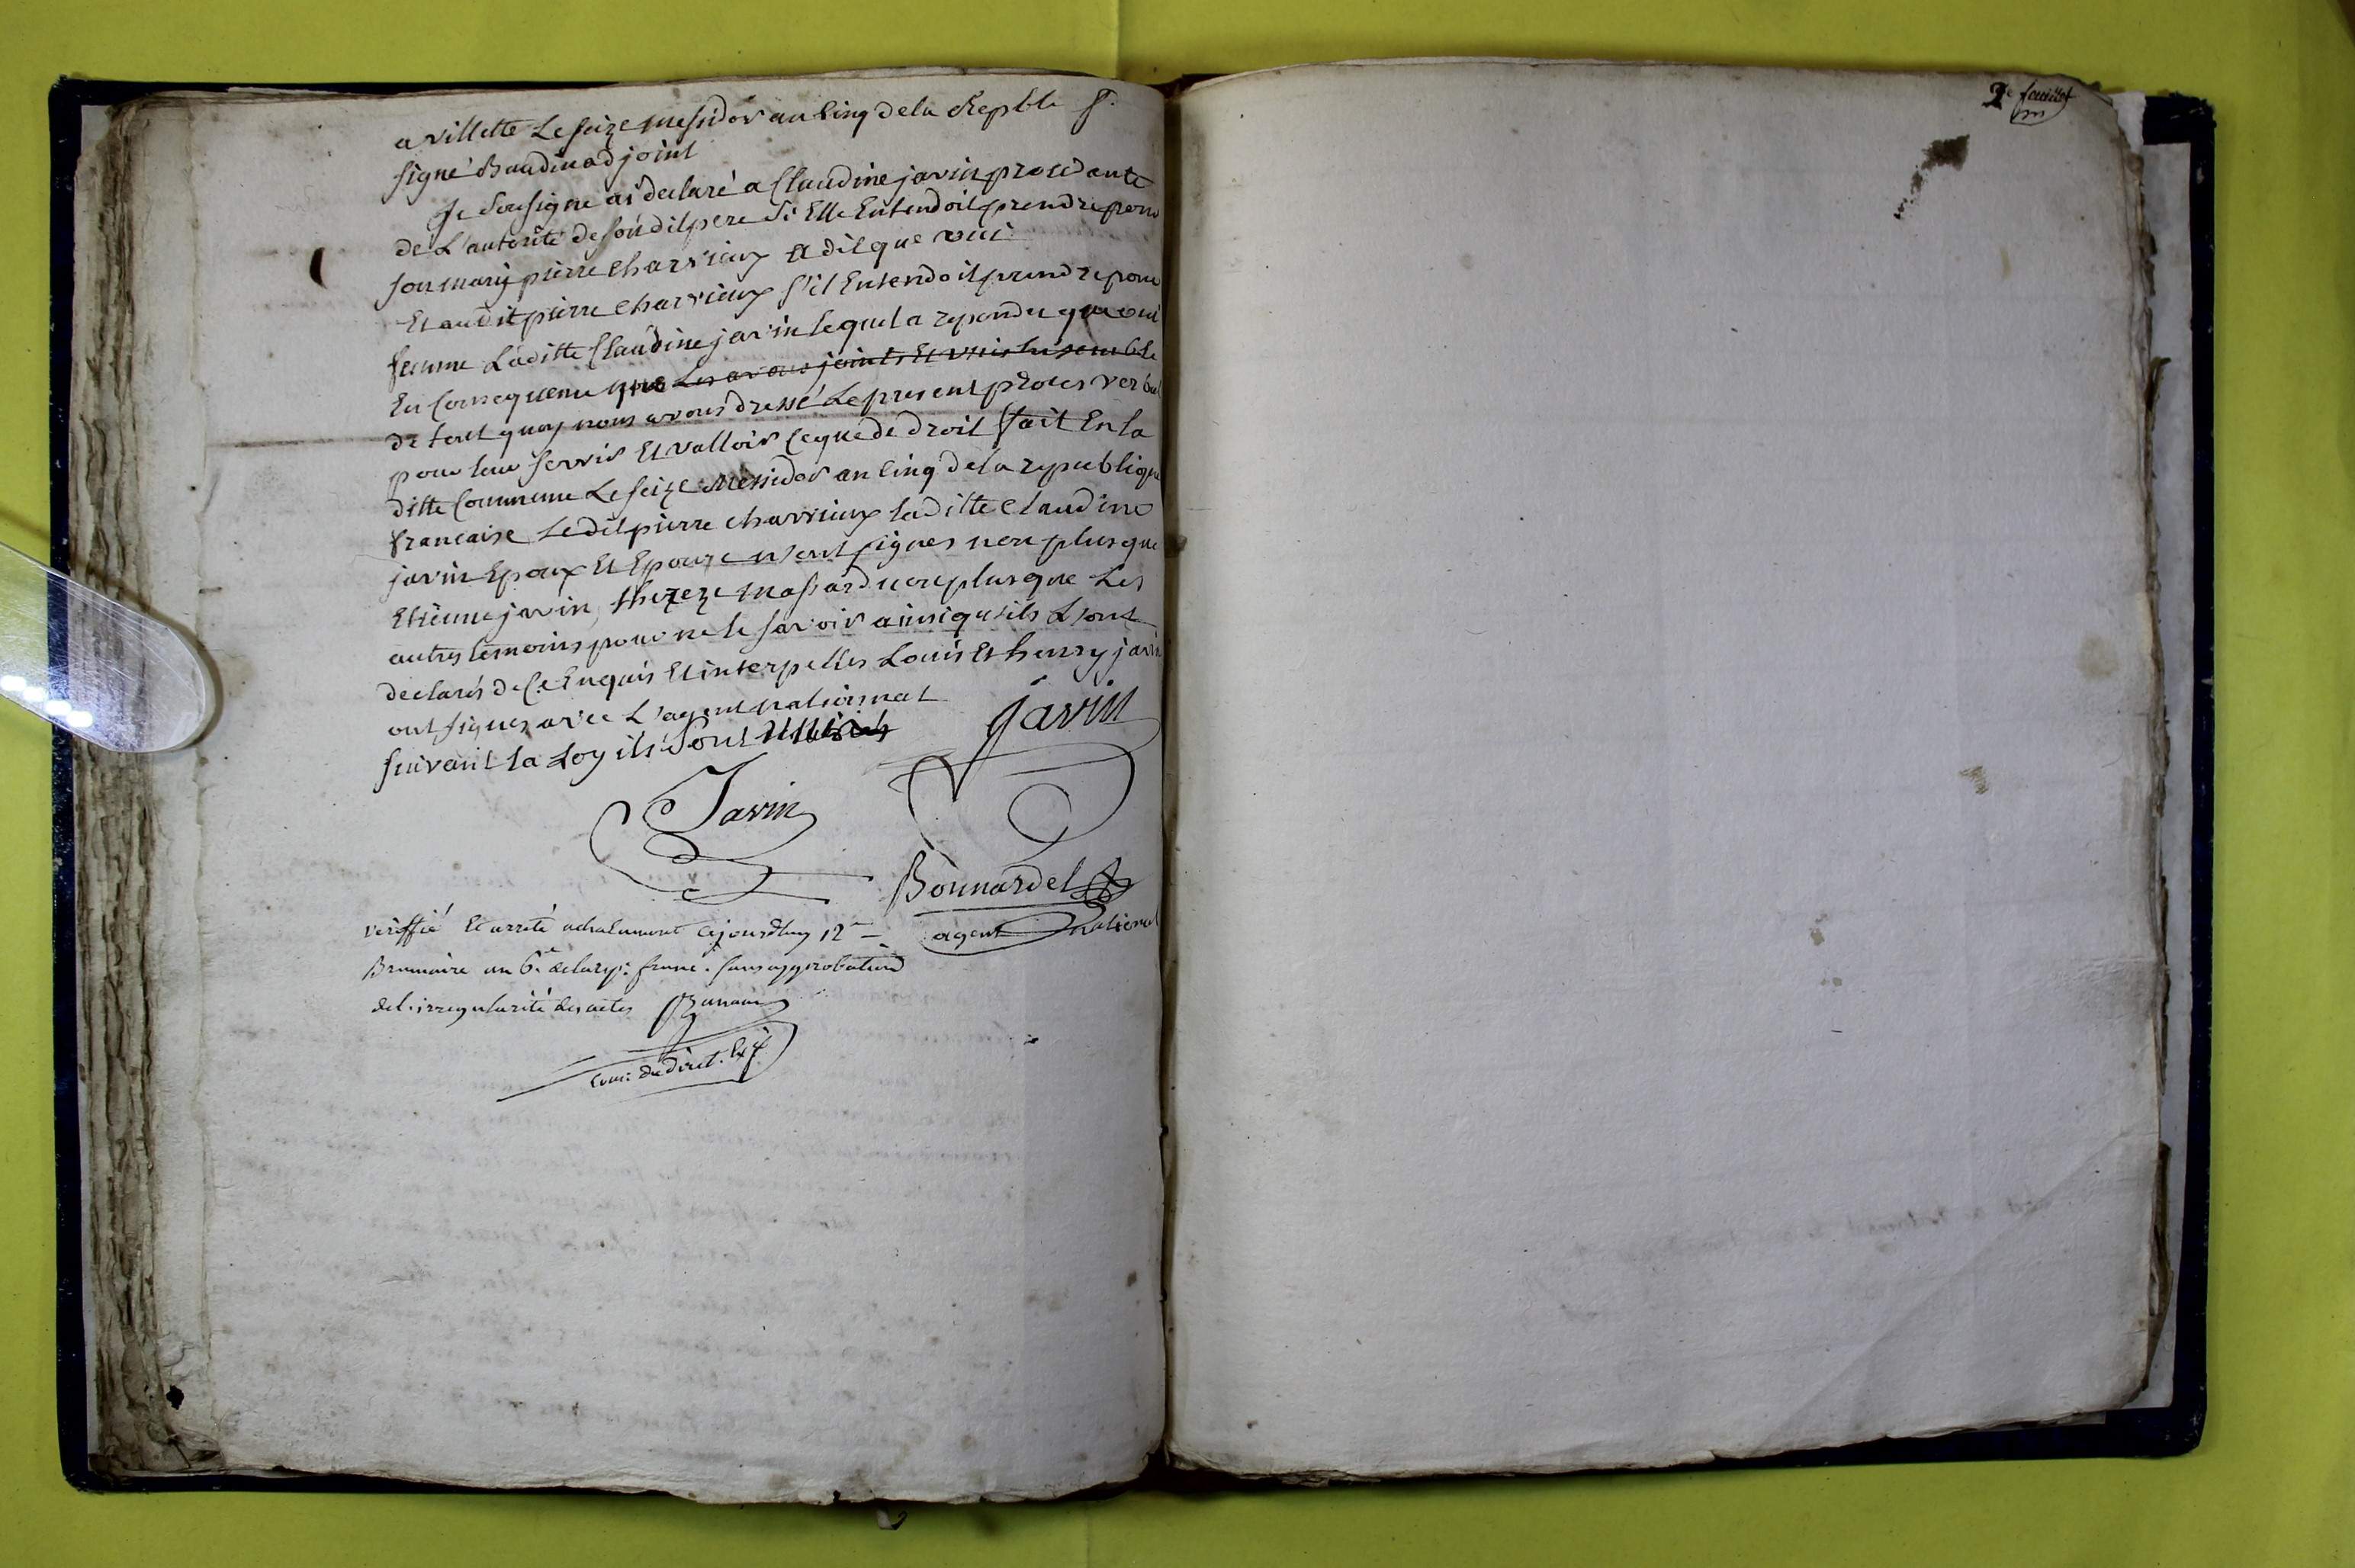 a villette Le seize messidor an cinq de la Repble f.
signé Baudin adjoint
Je Sousigné ai declaré a Claudine javin procedante
de L'autorité de son dit pere Si Elle Entendoit prendre pour
son mary pierre charvieux a dit que oui
Et audit pierre charvieux s'il Entendoit prendre pour
femme Laditte Claudine javin lequel a repondu que oui
En Consequence que Les avons joints Et unis Ensemble
de tout quoy nous avons dressé Le present proces verbal
pour leur servir Et valloir ce que de droit fait En la
ditte Commune Le seize Messidor an cinq de la republique
francaise Le dit pierre charvieux la ditte claudine
javin Epoux Et Epouze n'ont signes non plus que
Etienne javin, thereze massard non plus que Les
autres temoins pour ne le savoir ainsi qu'ils L'ont
declarés de ce Enquis Et interpelles Louis Et henry javin
ont signes avec L'agent national
suivant la Loy ils sont unis
javin
Javin
Bonnardel
agent national
veriffié Et arreté achalamont cejourdhuy 12e
Brumaire an 6e. de la rep. franc. sans approbation
de l'irregularité des actes
Com: du direct. Exf